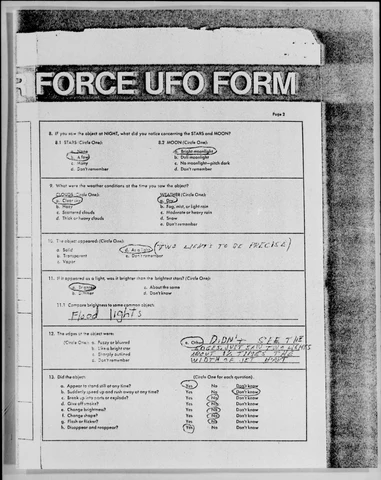 FORCE UFO FORM
Page 3
8. If you saw the object at NIGHT, what did you notice concerning the STARS and MOON?
8.1 STARS (Circle One): 8.2 MOON (Circle One):
a. None a. Bright moonlight
b. A few b. Dull moonlight
c. Many c. No moonlight—pitch dark
d. Don't remember d. Don't remember
9. What were the weather conditions at the time you saw the object?
CLOUDS (Circle One): WEATHER (Circle One):
a. Clear sky a. Dry
b. Hazy b. Fog, mist, or light rain
c. Scattered clouds c. Moderate or heavy rain
d. Thick or heavy clouds d. Snow
e. Don't remember
10. The object appeared: (Circle One):
a. Solid d. As a light (TWO LIGHTS TO BE PRECISE)
b. Transparent e. Don't remember
c. Vapor
11. If it appeared as a light, was it brighter than the brightest stars? (Circle One):
a. Brighter c. About the same
b. Dimmer d. Don't know
11.1 Compare brightness to some common object.
Flood lights
12. The edges of the object were:
(Circle One): a. Fuzzy or blurred e. Other DIDN'T SEE THE
b. Like a bright star JUST TWO LIGHTS
c. Sharply outlined ABOUT 12 TIMES THE
d. Don't remember WIDTH OF
13. Did the object: (Circle One for each question)
a. Appear to stand still at any time? Yes No Don't know
b. Suddenly speed up and rush away at any time? Yes No Don't know
c. Break up into parts or explode? Yes No Don't know
d. Give off smoke? Yes No Don't know
e. Change brightness? Yes No Don't know
f. Change shape? Yes No Don't know
g. Flash or flicker? Yes No Don't know
h. Disappear and reappear? Yes No Don't know